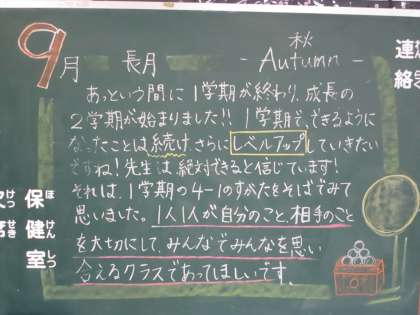 9月 長月 - 秋 Autumn -
あっという間に1学期が終わり、成長の
2学期が始まりました!! 1学期で、できるように
なったことは続け、さらにレベルアップしていきたい
ですね!先生は絶対できると信じています!
それは、1学期の4-1のすがたをそばでみて
思いました。1人1人が自分のこと、相手のこと
を大切にして、みんなでみんなを思い
合えるクラスであってほしいです。
連
絡
欠席
けっせき
保健室
ほけんしつ